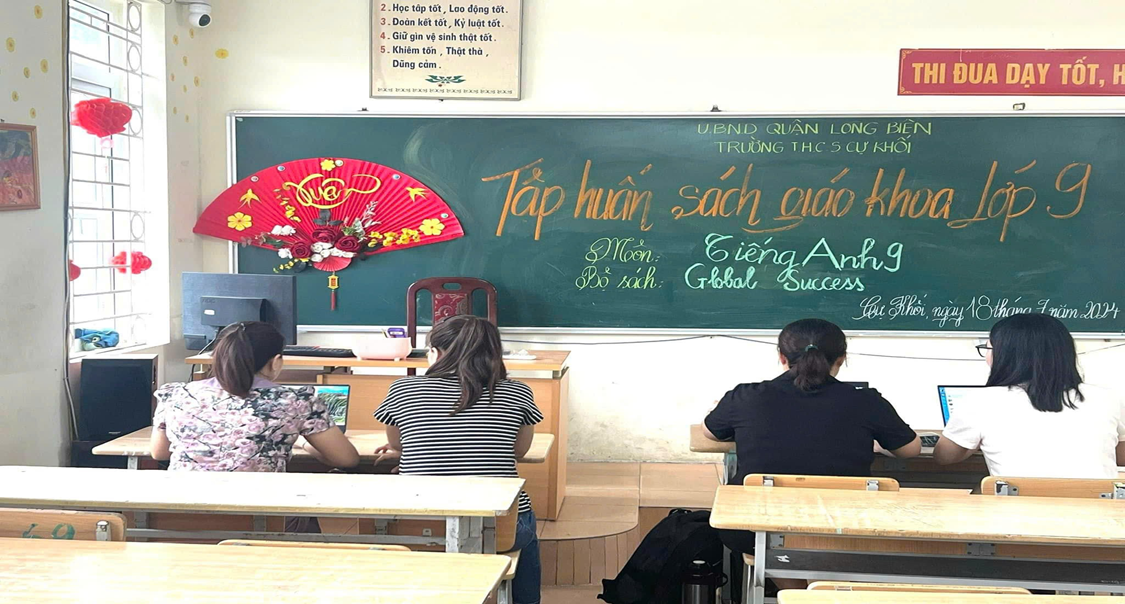 2. Học tập tốt, Lao động tốt.
3. Đoàn kết tốt, Kỷ luật tốt.
4. Giữ gìn vệ sinh thật tốt.
5. Khiêm tốn, Thật thà,
Dũng cảm.
THI ĐUA DẠY TỐT, H
U.B.N.D QUẬN LONG BIÊN
TRƯỜNG T.H.C.S CỰ KHỐI
Tập huấn sách giáo khoa Lớp 9
Môn: Tiếng Anh 9
Bộ sách: Global Success
Cự Khối, ngày 18 tháng 7 năm 2024
Xuân
49